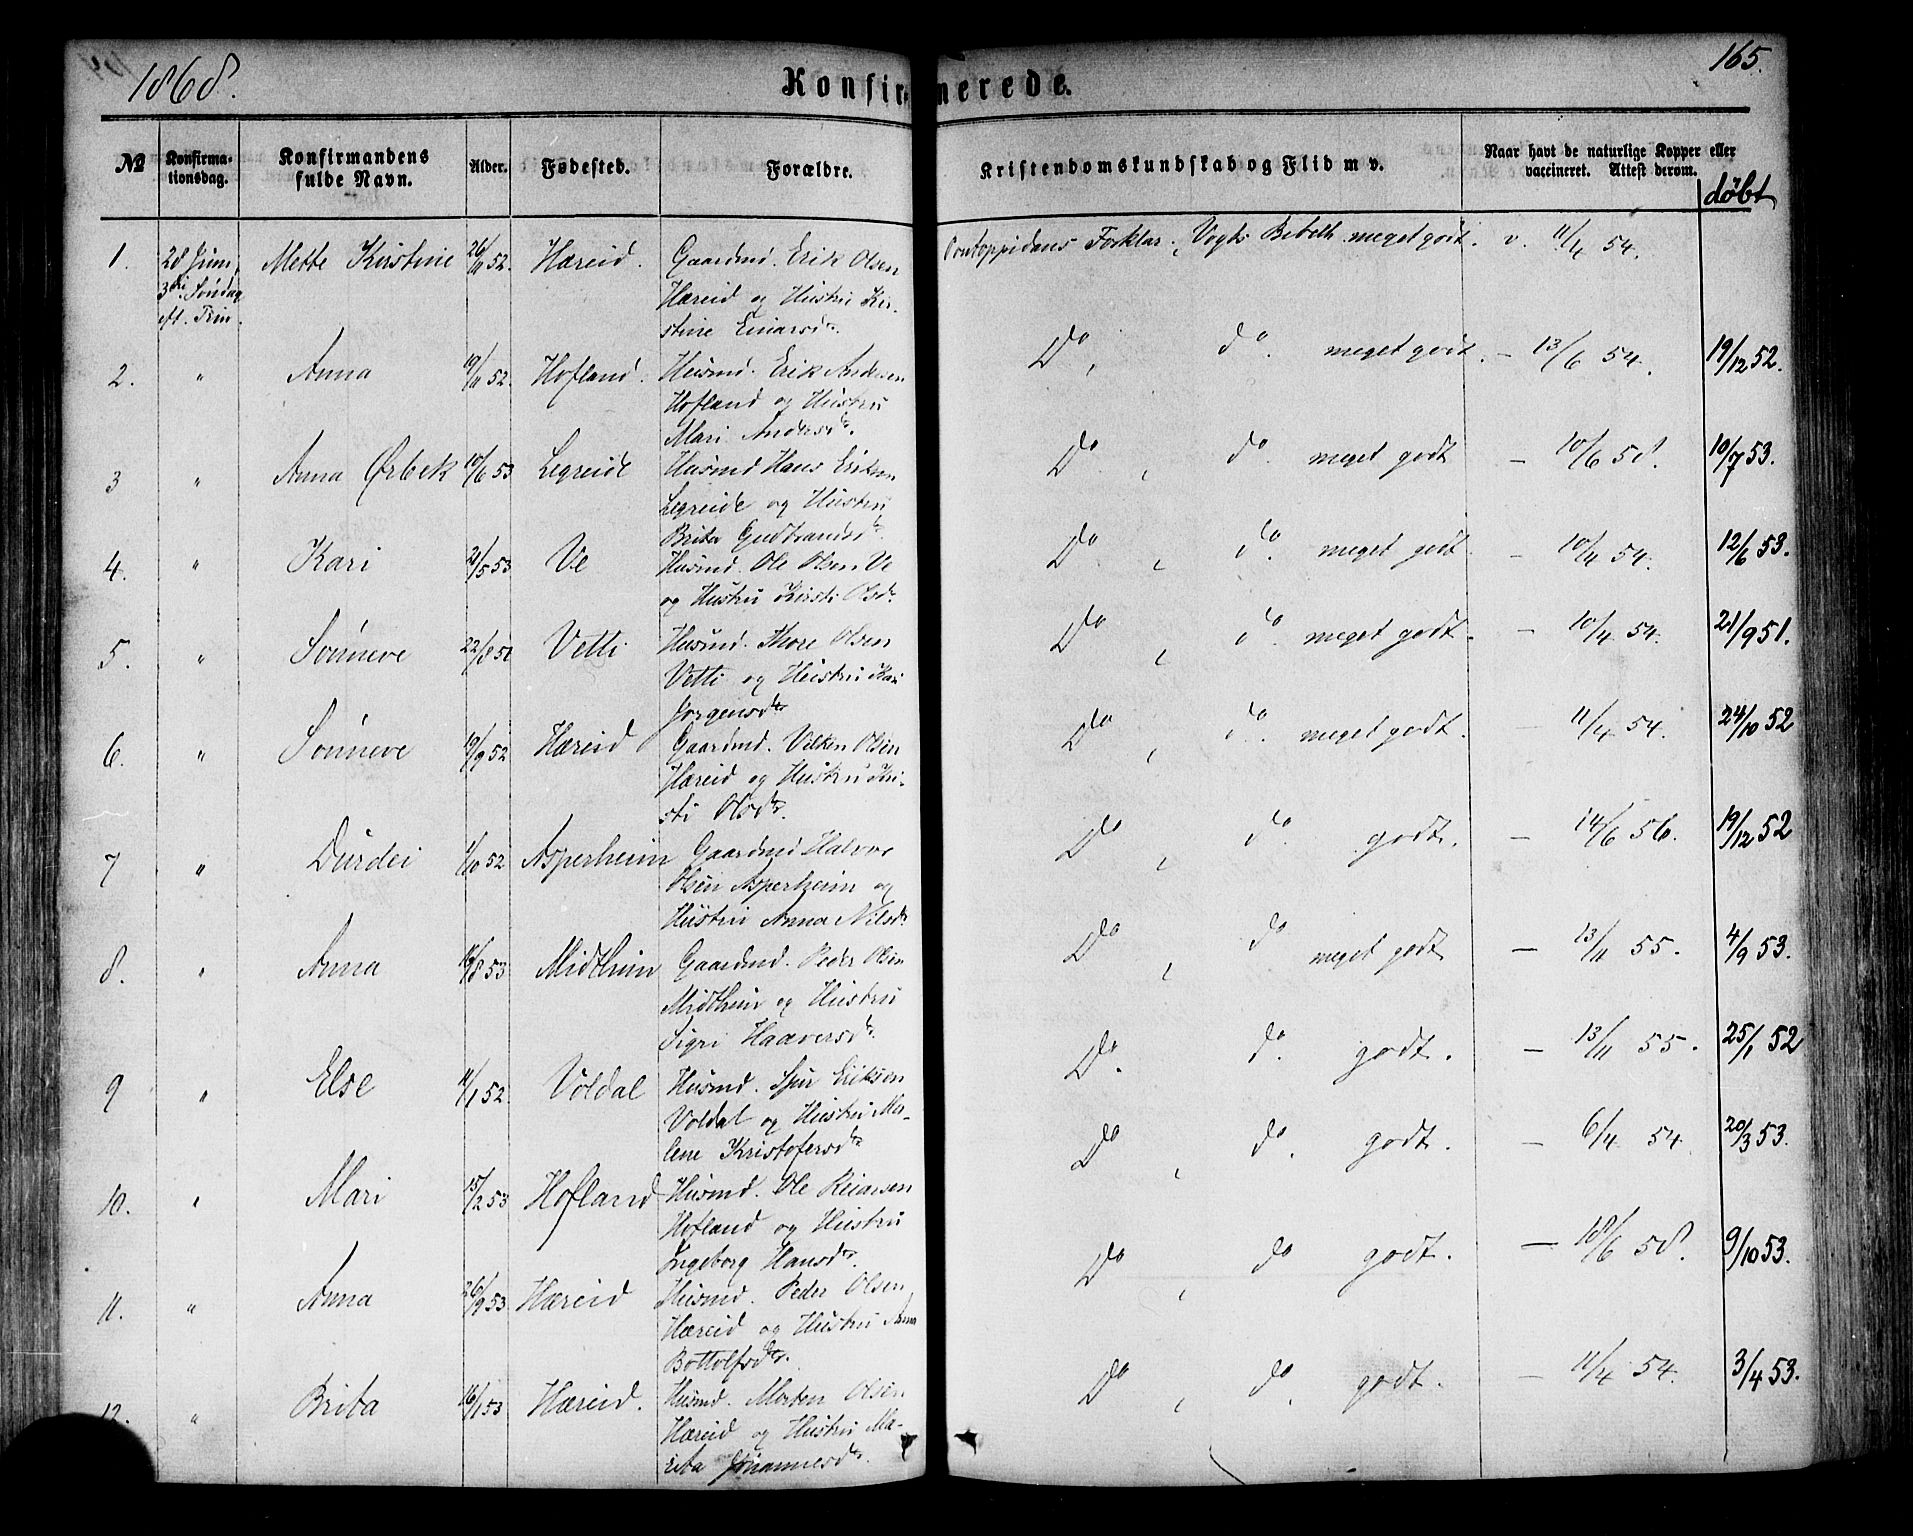 1868.
Konfirmerede.
165.
No
Konfirma-
tionsdag.
Konfirmandens
fulde Navn.
Alder.
Fødested.
Forældre.
Kristendomskundskab og Flid m v.
Naar havt de naturlige Kopper eller
vaccineret. Attest derom.
døbt
1. 28 Juni, Mette Kirstine 26/11 52. Hæreid. Gaardmd. Erik Olsen Pontoppidans Forklar., Vogts Bibelh. meget godt. v. 11/4 54.
3die Søndag Hæreid og Hustru Kir-
eft. Trin. stine Einarsdr.
2. " Anna 19/11 52. Hofland. Husmd. Erik Andersen Do, do. meget godt. — 13/6 54. 19/12 52.
Hofland og Hustru
Mari Andersdr.
3 " Anna Ørbek 10/6 53 Legreide Husmd Hans Eriksen Do, do. meget godt — 10/6 58. 10/7 53.
Legreide og Hustru
Brita Gudbrandsdr.
4. " Kari 21/5 53 Ve Husmd. Ole Olsen Ve Do, do. meget godt. — 10/4 54. 12/6 53.
og Hustru Kirsti Olsdr.
5. " Sønneve 22/8 51 Vetti Husmd. Thore Olsen Do, do. meget godt. — 10/4 54. 21/9 51.
Vetti og Hustru Kari
Jørgensdr
6. " Sønneve 19/9 52 Hæreid Gaardmd. Vilken Olsen Do, do. meget godt. — 11/4 54. 24/10 52
Hæreid og Hustru Kri-
sti Olsdr.
7 " Durdei 1/10 52 Asperheim Gaardmd Halvor Do, do godt. — 14/6 56. 19/12 52
Olsen Asperheim og
Hustru Anna Nilsdr.
8. " Anna 16/8 53 Midtheim Gaardmd. Peder Olsen Do, do meget godt — 13/11 55. 4/9 53.
Midtheim og Hustru
Sigri Haaversdr.
9 " Else 11/1 52 Voldal Husmd. Sjur Eriksen Do. do. godt. — 13/11 55. 25/1 52
Voldal og Hustru Ma-
lene Kristofersdr
10. " Mari 15/2 53 Hofland Husmd. Ole Reiarsen Do, do. godt. — 6/4 54. 20/3 53.
Hofland og Hustru
Ingeborg Hansdr.
11. " Anna 26/9 53 Hæreid Husmd. Peder Olsen Do, do godt. — 18/6 58. 9/10 53.
Hæreid og Hustru Anna
Bottolfsdr.
12. " Brita 16/1 53 Hæreid. Husmd. Morten Olsen Do, do. godt. — 11/4 54. 3/4 53.
Hæreid og Hustru Ma-
rita Johannesdr.